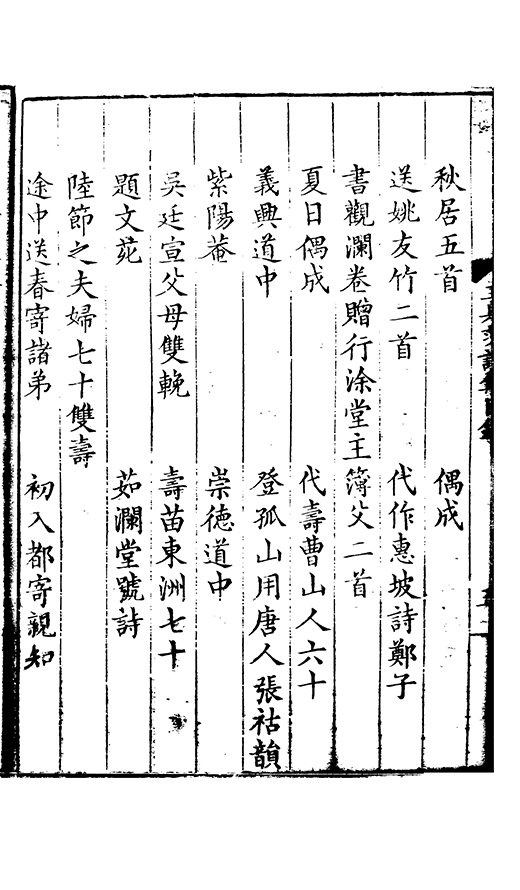 秋居五首　偶成
送姚友竹二首　代作惠坡詩鄭子
書觀瀾卷贈行涂堂主簿父二首
夏日偶成　代壽曹山人六十
義興道中　登孤山用唐人張祜韻
紫陽菴　崇德道中
吳廷宣父母雙輓　壽苗東洲七十
題文苑　茹瀾堂號詩
陸節之夫婦七十雙壽
途中送春寄諸弟　初入都寄親知